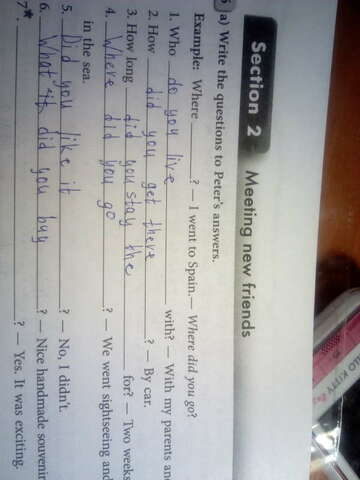 Section 2 Meeting new friends
5 a) Write the questions to Peter's answers.
Example: Where ? — I went to Spain.— Where did you go?
1. Who do you live with? — With my parents an
2. How did you get there ? — By car.
3. How long did you stay the for? — Two weeks
4. Where did you go ? — We went sightseeing and
in the sea.
5. Did you like it ? — No, I didn't.
6. What did you buy ? — Nice handmade souvenir
7* ? — Yes. It was exciting.
KITTY